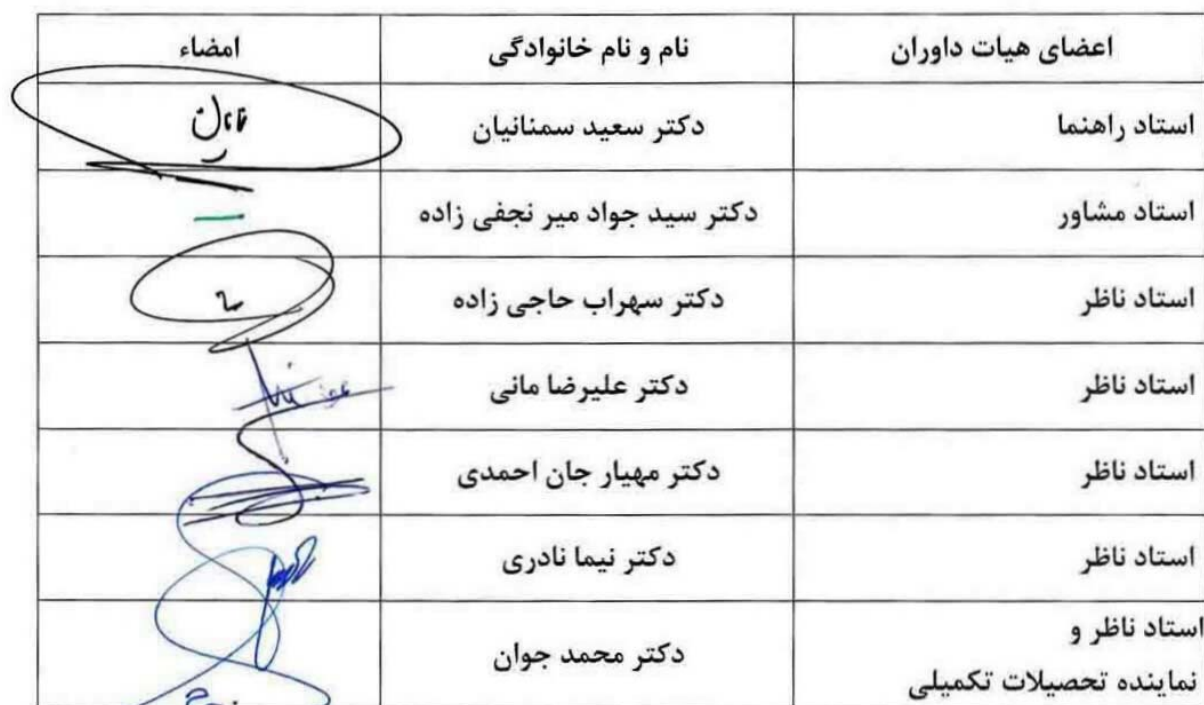 اعضای هیات داوران نام و نام خانوادگی امضاء
استاد راهنما دکتر سعید سمنانیان
استاد مشاور دکتر سید جواد میر نجفی زاده
استاد ناظر دکتر سهراب حاجی زاده
استاد ناظر دکتر علیرضا مانی
استاد ناظر دکتر مهیار جان احمدی
استاد ناظر دکتر نیما نادری
استاد ناظر و
نماینده تحصیلات تکمیلی دکتر محمد جوان